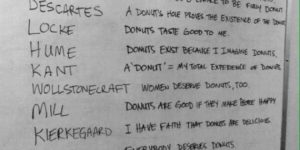 TO BE FULLY DONUT
DESCARTES A DONUT'S HOLE PROVES THE EXISTENCE OF THE DONUT
LOCKE DONUTS TASTE GOOD TO ME.
HUME DONUTS EXIST BECAUSE I IMAGINE DONUTS.
KANT A 'DONUT' = MY TOTAL EXPERIENCE OF DONUTS
WOLLSTONECRAFT WOMEN DESERVE DONUTS, TOO.
MILL DONUTS ARE GOOD IF THEY MAKE PEOPLE HAPPY
KIERKEGAARD I HAVE FAITH THAT DONUTS ARE DELICIOUS.
EVERYBODY DESERVES DONUTS.